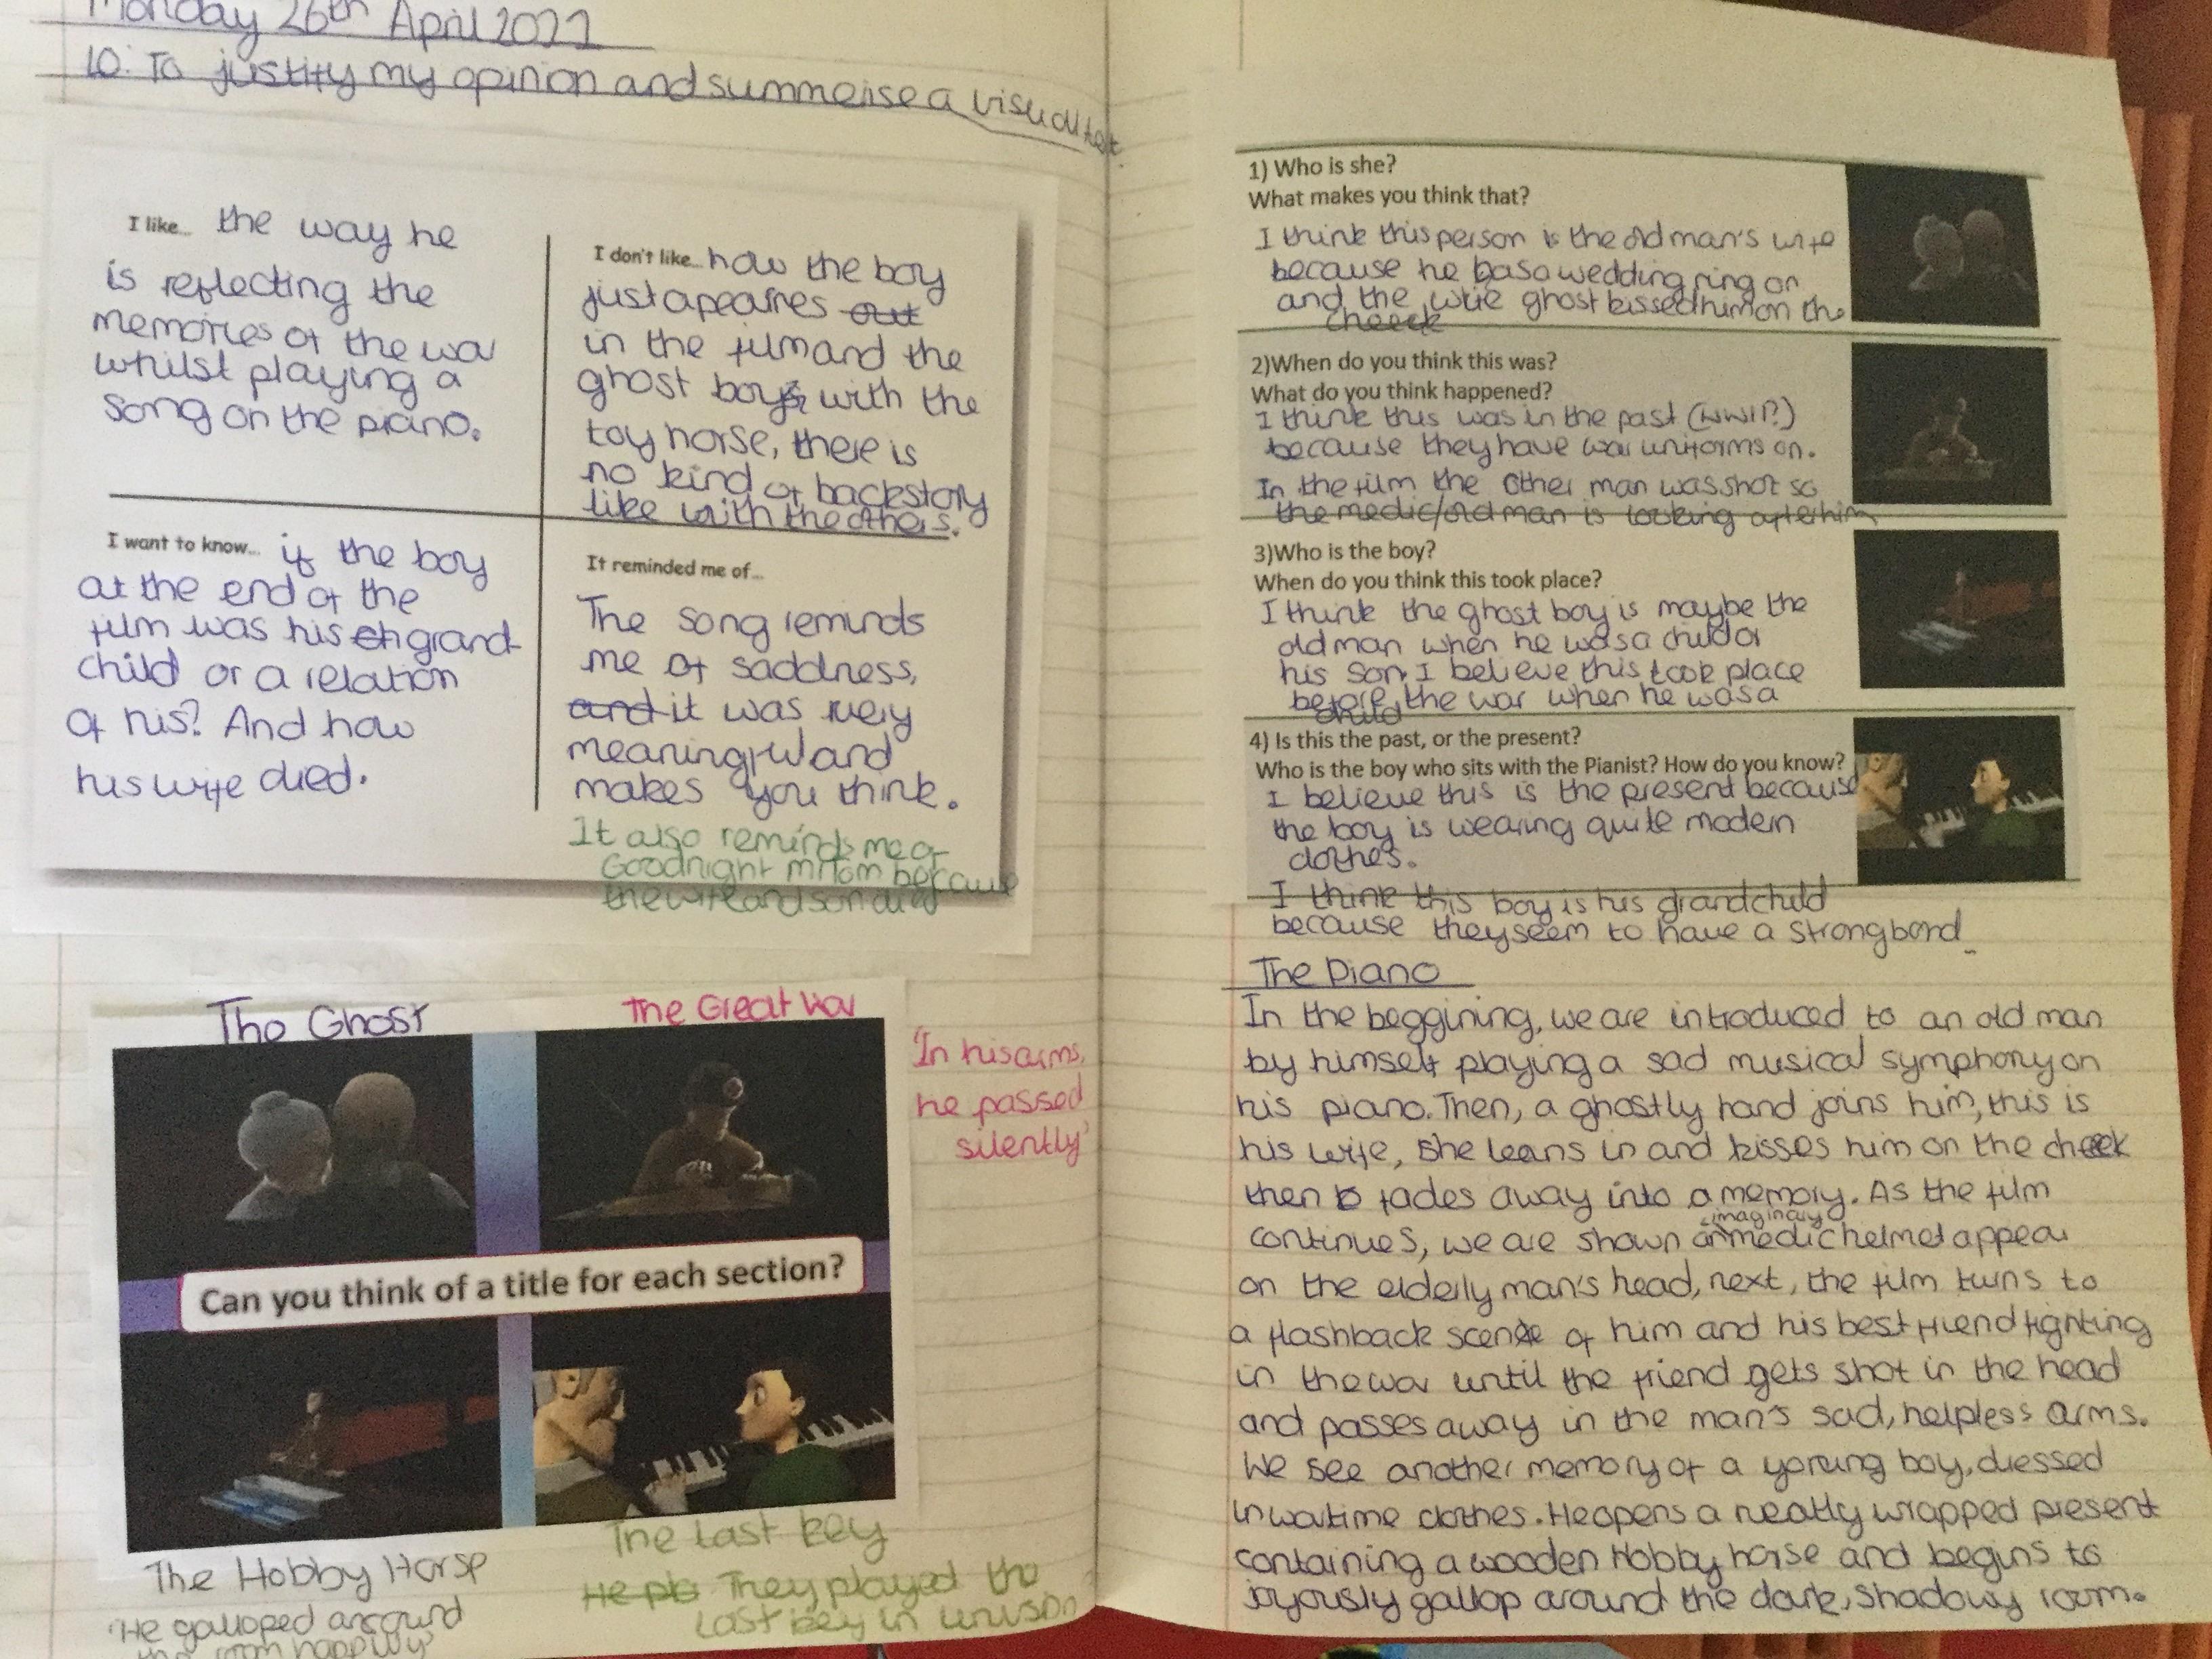 Monday 26th April 2021
LO: To justify my opinion and summerise a visual text.
I like... the way he
is reflecting the
memories of the war
whilst playing a
song on the piano.
I don't like... how the boy
just apearres out
in the film and the
ghost boys with the
toy horse, there is
no kind of backstory
like with the others.
I want to know... if the boy
at the end of the
film was his grand-
child or a relation
of his? And how
his wife died.
It reminded me of...
The song reminds
me of saddness,
and it was very
meaningful and
makes you think.
It also reminds me of
Goodnight mr Tom because
the wife and son died
The Ghost
The Great War
'In his arms,
he passed
silently'
Can you think of a title for each section?
The Hobby Horse
'He galloped around
the room happily'
The Last key
They played the
last key in unison
1) Who is she?
What makes you think that?
I think this person is the old man's wife
because he has a wedding ring on
and the wife ghost kissed him on the
cheek
2)When do you think this was?
What do you think happened?
I think this was in the past (WW1?)
because they have war uniforms on.
In the film the other man was shot so
the medic/old man is looking after him
3)Who is the boy?
When do you think this took place?
I think the ghost boy is maybe the
old man when he was a child or
his son, I believe this took place
before the war when he was a
child
4) Is this the past, or the present?
Who is the boy who sits with the Pianist? How do you know?
I believe this is the present because
the boy is wearing quite modern
clothes.
I think this boy is his grandchild
because they seem to have a strong bond
The Piano
In the beggining, we are introduced to an old man
by himself playing a sad musical symphony on
his piano. Then, a ghostly hand joins him, this is
his wife, she leans in and kisses him on the cheek
then fades away into a memory. As the film
continues, we are shown an imaginary medic helmet appear
on the elderly man's head, next, the film turns to
a flashback scene of him and his best friend fighting
in the war until the friend gets shot in the head
and passes away in the man's sad, helpless arms.
We see another memory of a young boy, dressed
in wartime clothes. He opens a neatly wrapped present
containing a wooden Hobby horse and begins to
joyously gallop around the dark, shadowy room.